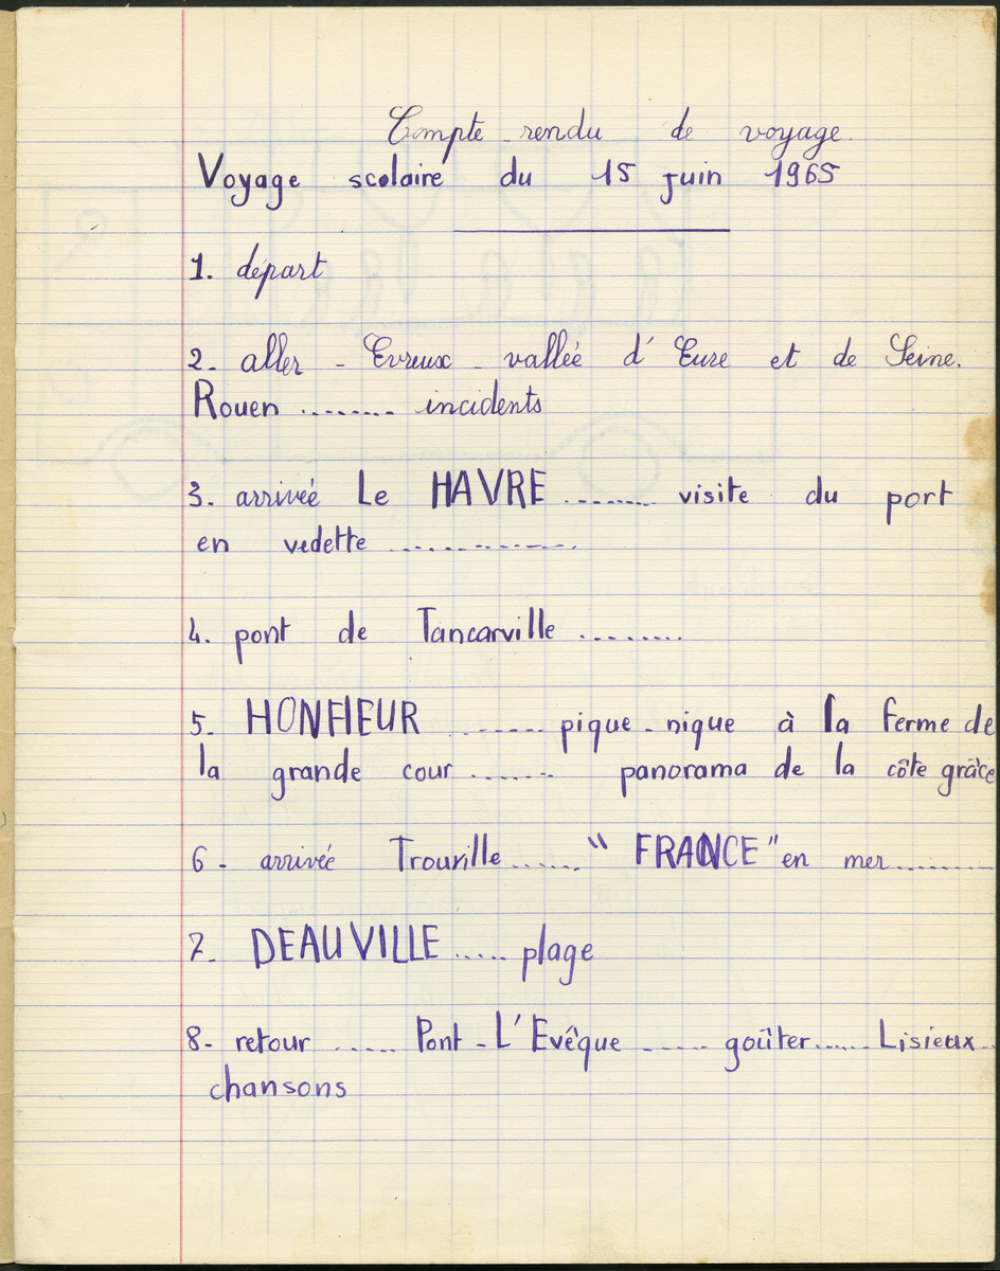 Compte-rendu de voyage.
Voyage scolaire du 15 juin 1965
1. départ
2. aller - Evreux - vallée d'Eure et de Seine.
Rouen ........ incidents
3. arrivée Le HAVRE ........ visite du port
en vedette ..............
4. pont de Tancarville ........
5. HONFLEUR ....... pique-nique à la ferme de
la grande cour ....... panorama de la côte grâce
6 - arrivée Trouville ...... " FRANCE " en mer ........
7. DEAUVILLE ..... plage
8- retour ..... Pont-L'Evêque ..... goûter ..... Lisieux ..
chansons